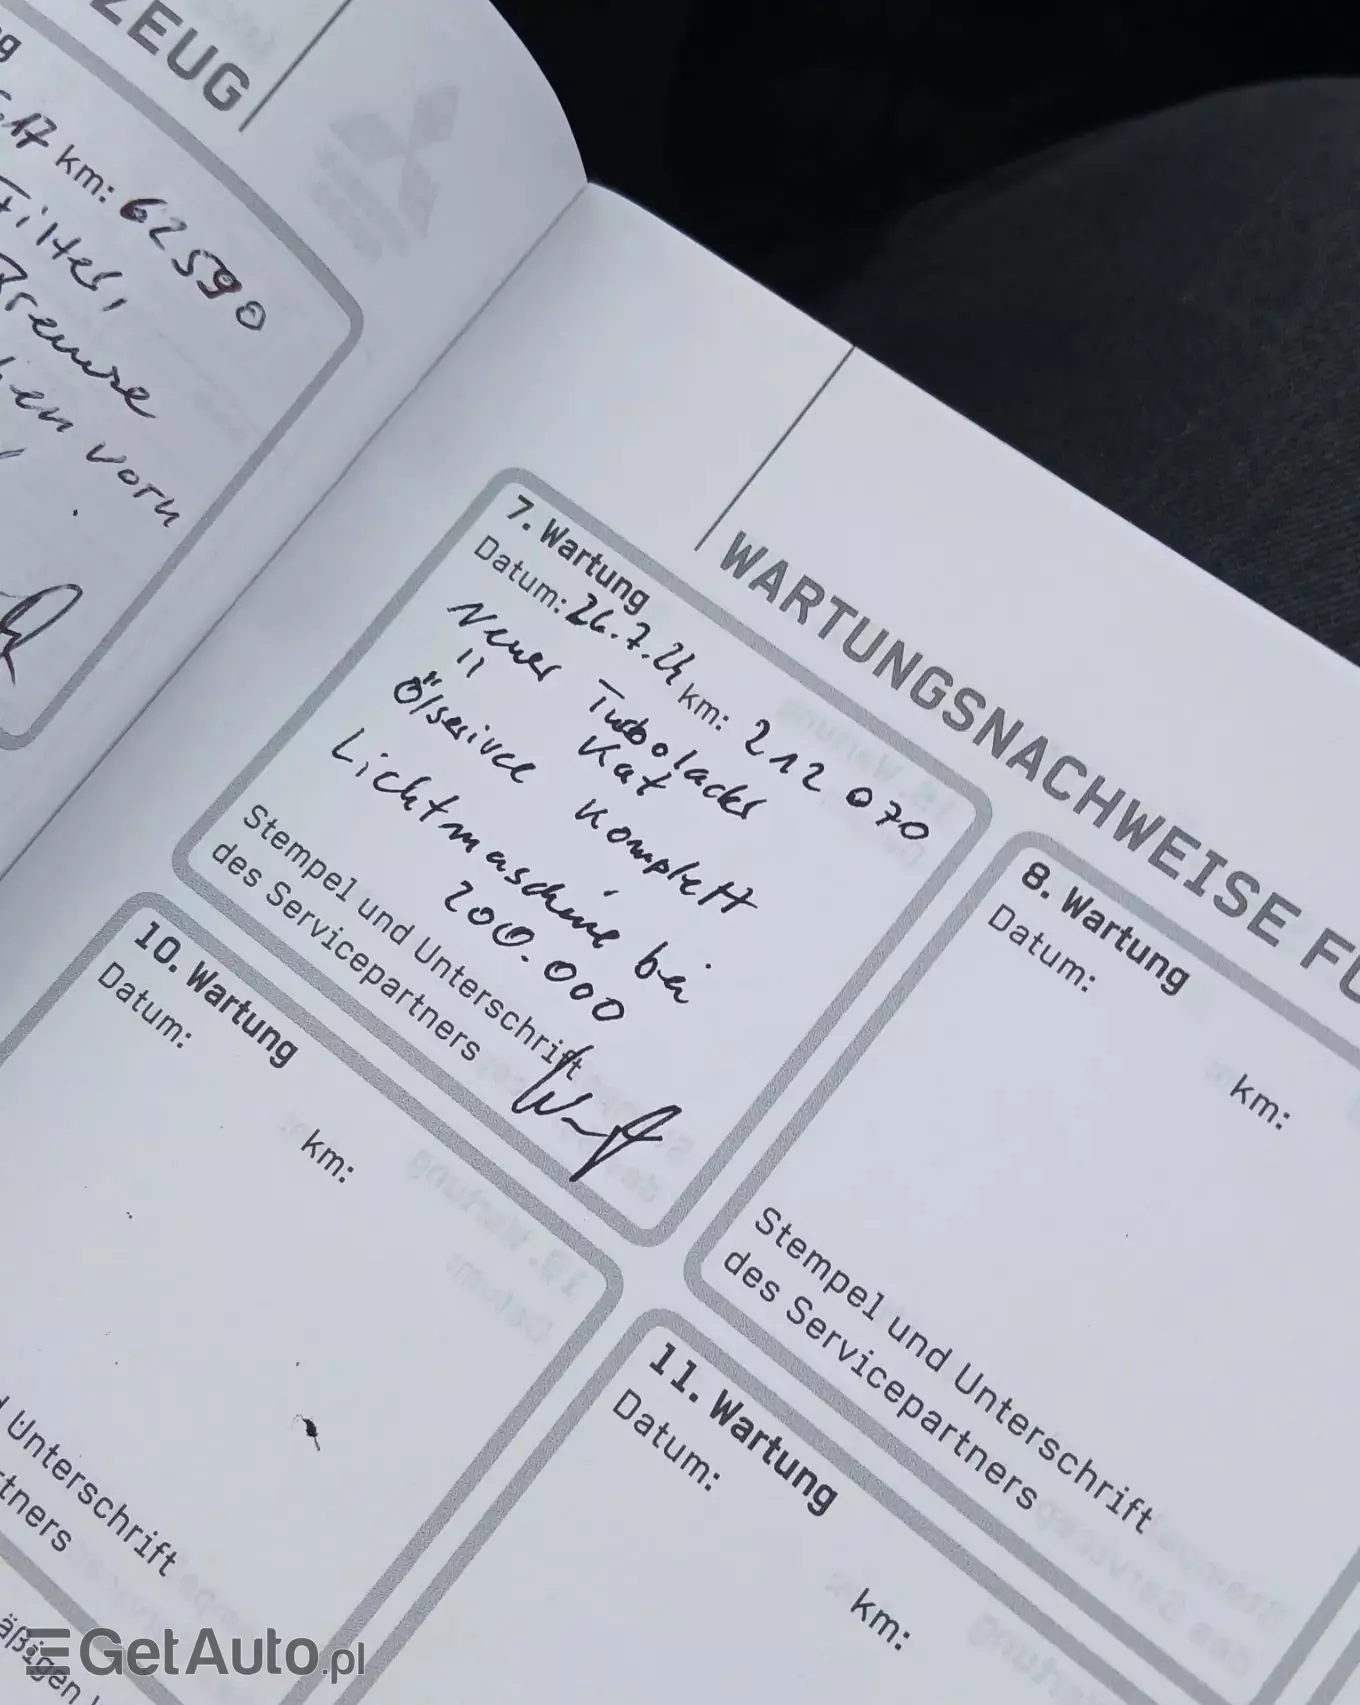 ZEUG
.17 km: 62590
Filter,
Bremse
vorn
WARTUNGSNACHWEISE
7. Wartung
Datum: 26.7.24 km: 212 070
Neuer Turbolader
" Kat
Ölserivce Komplett
Lichtmaschine bei
200.000
Stempel und Unterschrift
des Servicepartners
8. Wartung
Datum:
km:
Stempel und Unterschrift
des Servicepartners
10. Wartung
Datum:
km:
Unterschrift
11. Wartung
Datum:
km:
GetAuto.pl